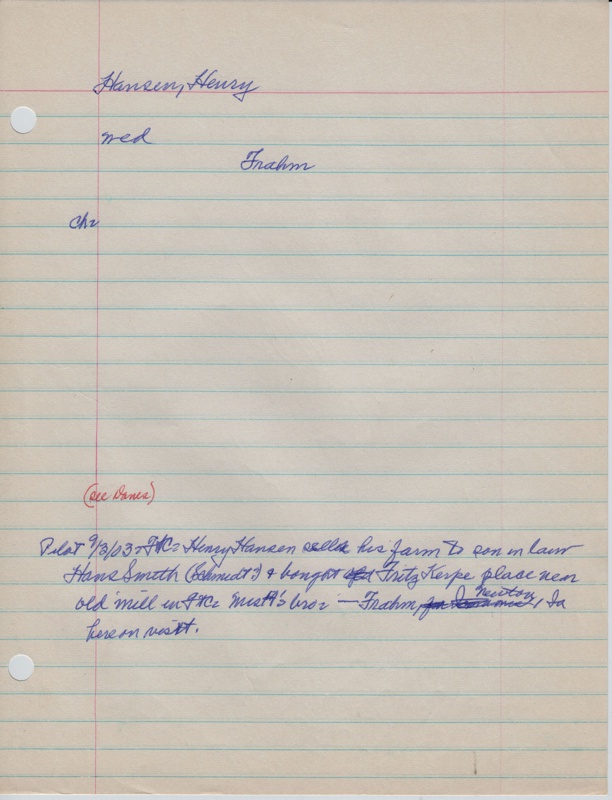 Hansen, Henry
wed
Frahm
Ch:
(see Danes)
Pilot 9/3/03: Henry Hansen sells his farm to son in law
Hans Smith (Schmidt?) & bought Fritz Kerpe place near
old mill in bro: — Frahm, Newton, Ia
here on visit.